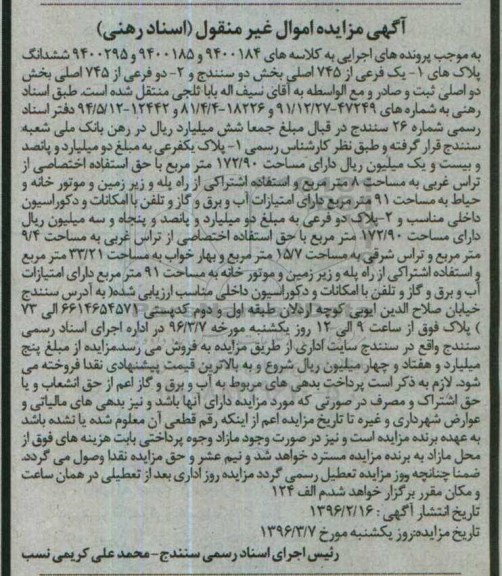 آگهی مزایده اموال غیر منقول (اسناد رهنی)
به موجب پرونده های اجرایی به کلاسه های ۹۴۰۰۱۸۴ و ۹۴۰۰۱۸۵ و ۹۴۰۰۲۹۵ ششدانگ
پلاک های ۱- یک فرعی از ۷۴۵ اصلی بخش دو سنندج و ۲- دو فرعی از ۷۴۵ اصلی بخش
دو اصلی ثبت و صادر و مع الواسطه به آقای سیف اله بابا ثلجی منتقل شده است. طبق اسناد
رهنی به شماره های ۴۷۲۴۹-۹۱/۱۲/۲۷ و ۱۸۲۲۶-۸۱/۴/۴ و ۱۲۴۴۲-۹۴/۵/۱۲ دفتر اسناد
رسمی شماره ۲۶ سنندج در قبال مبلغ جمعا شش میلیارد ریال در رهن بانک ملی شعبه
سنندج قرار گرفته و طبق نظر کارشناس رسمی ۱- پلاک یکفرعی به مبلغ دو میلیارد و پانصد
و بیست و یک میلیون ریال دارای مساحت ۱۷۲/۹۰ متر مربع با حق استفاده اختصاصی از
تراس غربی به مساحت ۸ متر مربع و استفاده اشتراکی از راه پله و زیر زمین و موتور خانه و
حیاط به مساحت ۹۱ متر مربع دارای امتیازات آب و برق و گاز و تلفن با امکانات و دکوراسیون
داخلی مناسب و ۲-پلاک دو فرعی به مبلغ دو میلیارد و پانصد و پنجاه و سه میلیون ریال
دارای مساحت ۱۷۲/۹۰ متر مربع با حق استفاده اختصاصی از تراس غربی به مساحت ۹/۴
متر مربع و تراس شرقی به مساحت ۱۵/۷ متر مربع و بهار خواب به مساحت ۳۳/۲۱ متر مربع
و استفاده اشتراکی از راه پله و زیر زمین و موتور خانه به مساحت ۹۱ متر مربع دارای امتیازات
آب و برق و گاز و تلفن با امکانات و دکوراسیون داخلی مناسب ارزیابی شده( به آدرس سنندج
خیابان صلاح الدین ایوبی کوچه اردلان طبقه اول و دوم کدپستی ۶۶۱۴۶۵۴۵۷۱ الی ۷۳
) پلاک فوق از ساعت ۹ الی ۱۲ روز یکشنبه مورخه ۹۶/۳/۷ در اداره اجرای اسناد رسمی
سنندج واقع در سنندج سایت اداری از طریق مزایده به فروش می رسد.مزایده از مبلغ پنج
میلیارد و هفتاد و چهار میلیون ریال شروع و به بالاترین قیمت پیشنهادی نقدا فروخته می
شود. لازم به ذکر است پرداخت بدهی های مربوط به آب و برق و گاز اعم از حق انشعاب و یا
حق اشتراک و مصرف در صورتی که مورد مزایده دارای آنها باشد و نیز بدهی های مالیاتی و
عوارض شهرداری و غیره تا تاریخ مزایده اعم از اینکه رقم قطعی آن معلوم شده یا نشده باشد
به عهده برنده مزایده است و نیز در صورت وجود مازاد وجوه پرداختی بابت هزینه های فوق از
محل مازاد به برنده مزایده مسترد خواهد شد و نیم عشر و حق مزایده نقدا وصول می گردد.
ضمنا چنانچه روز مزایده تعطیل رسمی گردد مزایده روز اداری بعد از تعطیلی در همان ساعت
و مکان مقرر برگزار خواهد شد.م الف ۱۲۴
تاریخ انتشار آگهی : ۱۳۹۶/۲/۱۶
تاریخ مزایده:روز یکشنبه مورخ ۱۳۹۶/۳/۷
رئیس اجرای اسناد رسمی سنندج-محمد علی کریمی نسب